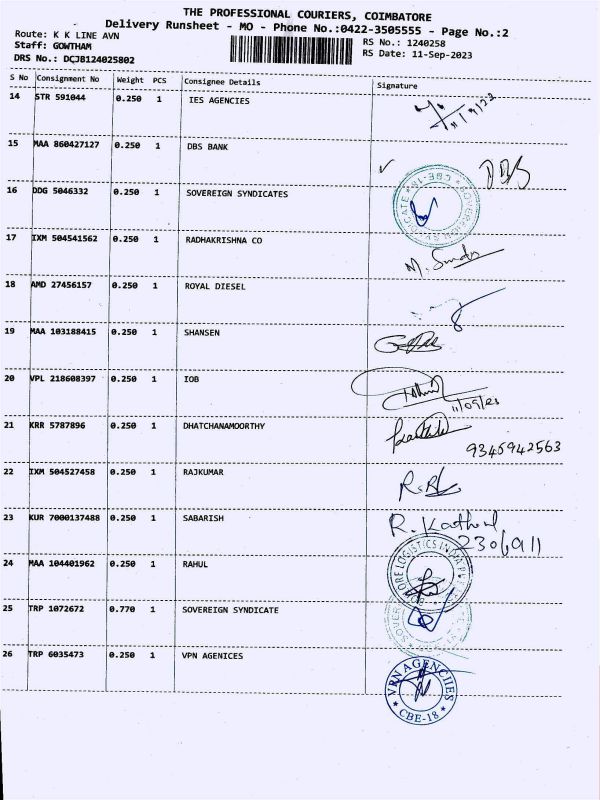 THE PROFESSIONAL COURIERS, COIMBATORE
Delivery Runsheet - MO - Phone No.:0422-3505555 - Page No.:2
Route: K K LINE AVN
RS No.: 1240258
Staff: GOWTHAM
RS Date: 11-Sep-2023
DRS No.: DCJ8124025802
S No Consignment No Weight PCS Consignee Details Signature
14 STR 591044 0.250 1 IES AGENCIES
15 MAA 860427127 0.250 1 DBS BANK DBS
16 DDG 5046332 0.250 1 SOVEREIGN SYNDICATES
17 IXM 504541562 0.250 1 RADHAKRISHNA CO
18 AMD 27456157 0.250 1 ROYAL DIESEL
19 MAA 103188415 0.250 1 SHANSEN
20 VPL 218608397 0.250 1 IOB
11/09/23
21 KRR 5787896 0.250 1 DHATCHANAMOORTHY
9345942563
22 IXM 504527458 0.250 1 RAJKUMAR
23 KUR 7000137488 0.250 1 SABARISH
24 MAA 104401962 0.250 1 RAHUL
25 TRP 1072672 0.770 1 SOVEREIGN SYNDICATE
26 TRP 6035473 0.250 1 VPN AGENICES
VRN AGENCIIES
CBE-18